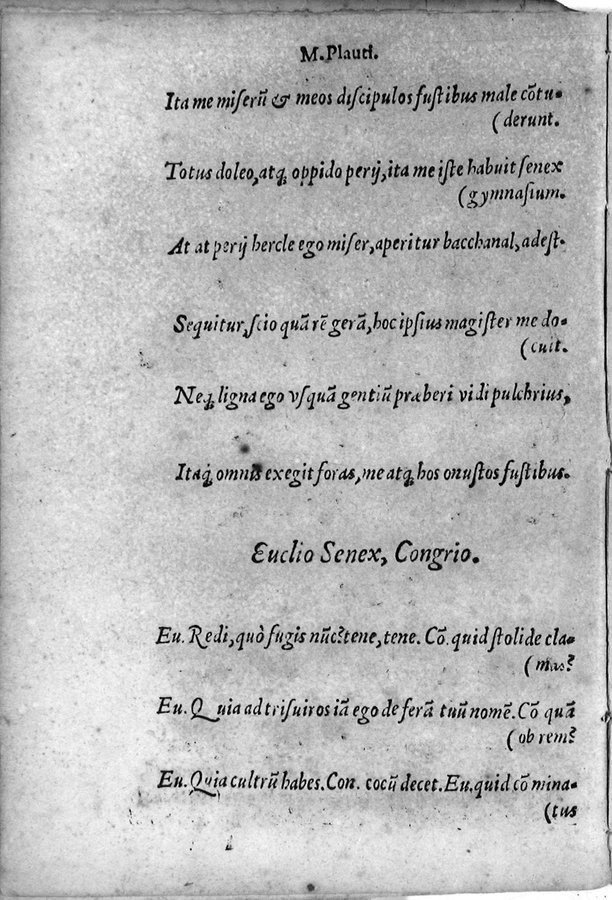 M. Plauti.
Ita me miserũ & meos discipulos fustibus male cõtu-
(derunt.
Totus doleo, atq; oppido perij, ita me iste habuit senex
(gymnasium.
At at perij hercle ego miser, aperitur bacchanal, adest.
Sequitur, scio quã rẽ gerã, hoc ipsius magister me do-
(cuit.
Neq; ligna ego vsquã gentiũ præberi vidi pulchrius,
Itaq; omnis exegit foras, me atq; hos onustos fustibus.
Euclio Senex, Congrio.
Eu. Redi, quò fugis nũc? tene, tene. Cõ. quid stolide cla-
(mas?
Eu. Quia ad trisuiros iã ego deferã tuũ nomẽ. Cõ quã
(ob rem?
Eu. Quia cultrũ habes. Con. cocũ decet. Eu. quid cõmina-
(tus